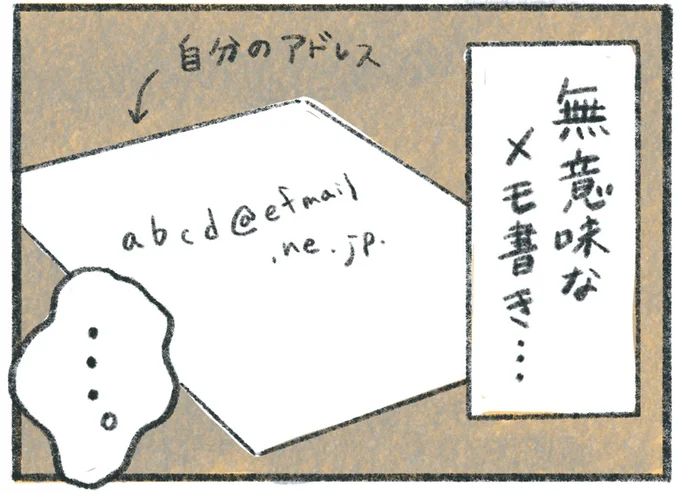 無意味な
メモ書き…
自分のアドレス
abcd@efmail
.ne.jp.
…。